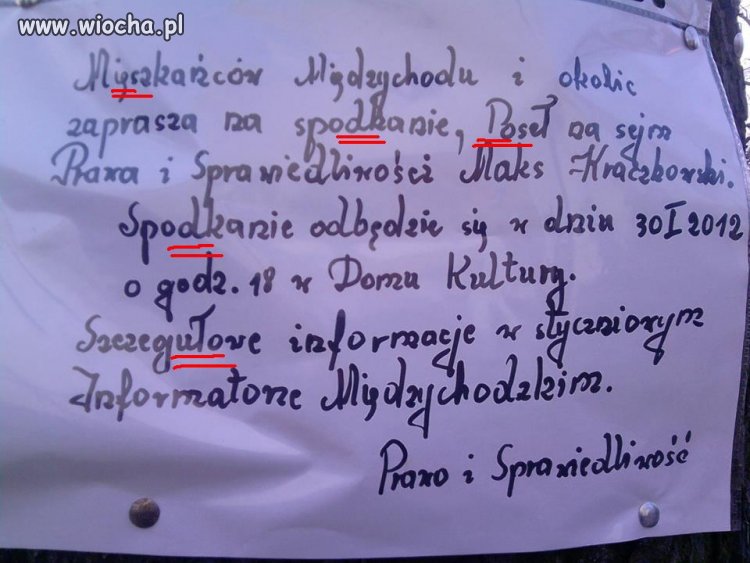 www.wiocha.pl
Mięszkańców Międzychodu i okolic
zaprasza na spodkanie, Poseł na sejm
Prawa i Sprawiedliwości Maks Kraczkowski.
Spodkanie odbędzie się w dniu 30 I 2012
o godz. 18 w Domu Kultury.
Szczegułowe informacje w styczniowym
Informatorze Międzychodzkim.
Prawo i Sprawiedliwość